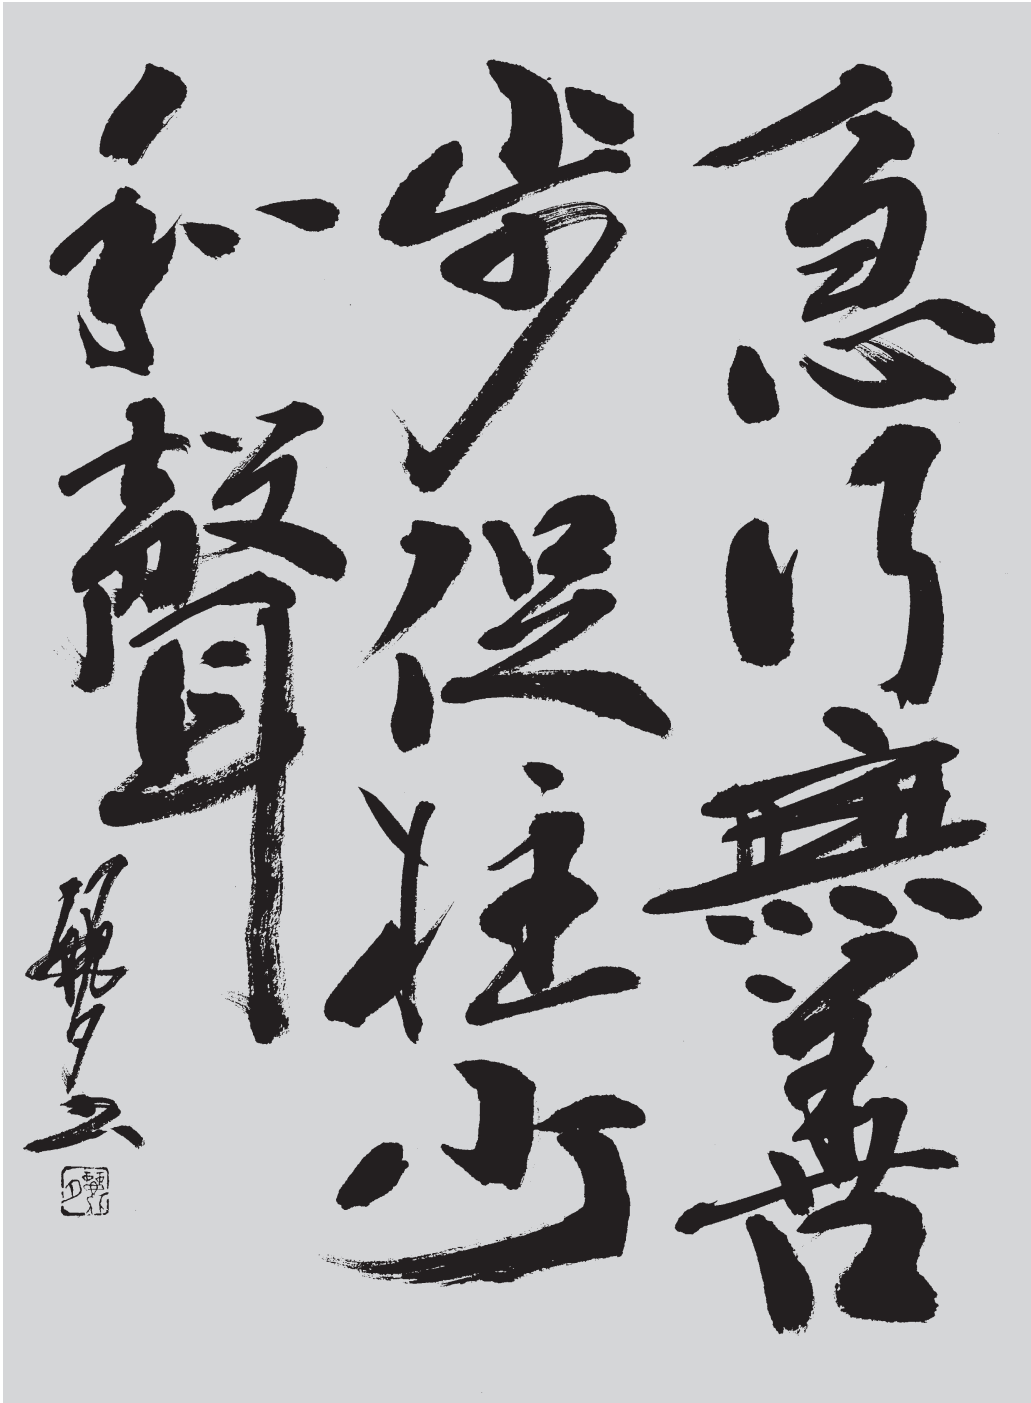 急行無善
步促柱少
和聲